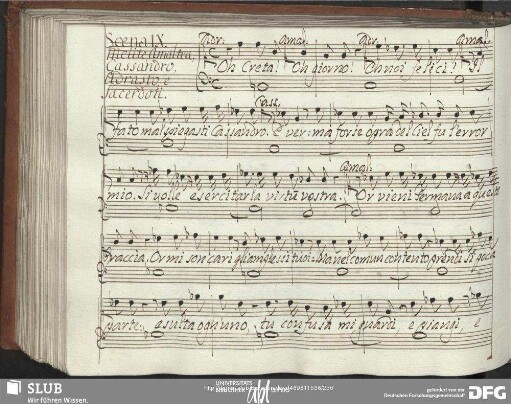 Scena IX.
Cassandro,
Adrasto, e
Sacerdoti.
Oh Creta! Oh giorno! Oh noi felici! Il
Cass.
fato mal spiegasti Cassandro. È ver: ma forse opra del Ciel fu l'error
Amal.
mio. Si volle esercitar la virtù vostra. Or vieni Germana a queste
braccia. Or mi son cari quanti sì tuoi: Ma nel comun contento prendi sì poca
parte: esulta ognuno, tu confusa mi guardi, e piangi, e
SLUB
Wir führen Wissen.
UNIVERSITÄTS
gefördert von der
Deutschen Forschungsgemeinschaft
DFG